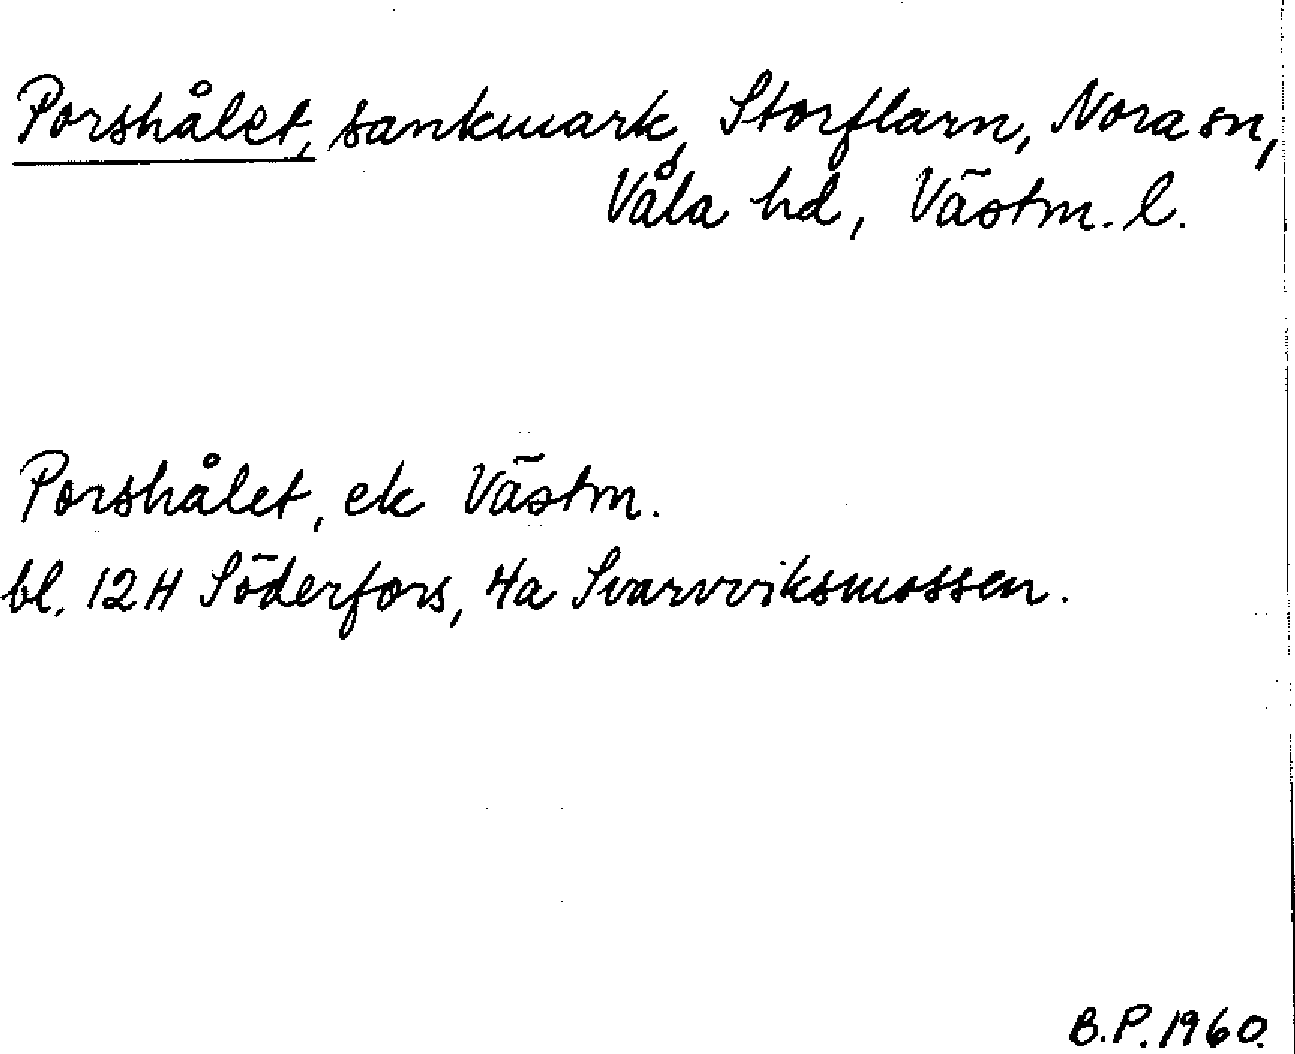 Porshålet, sankmark, Storflarn, Nora sn,
Våla hd, Västm. l.
Porshålet, ek Västm.
bl. 12H Söderfors, 4a Svarvviksmossen.
B.P. 1960.